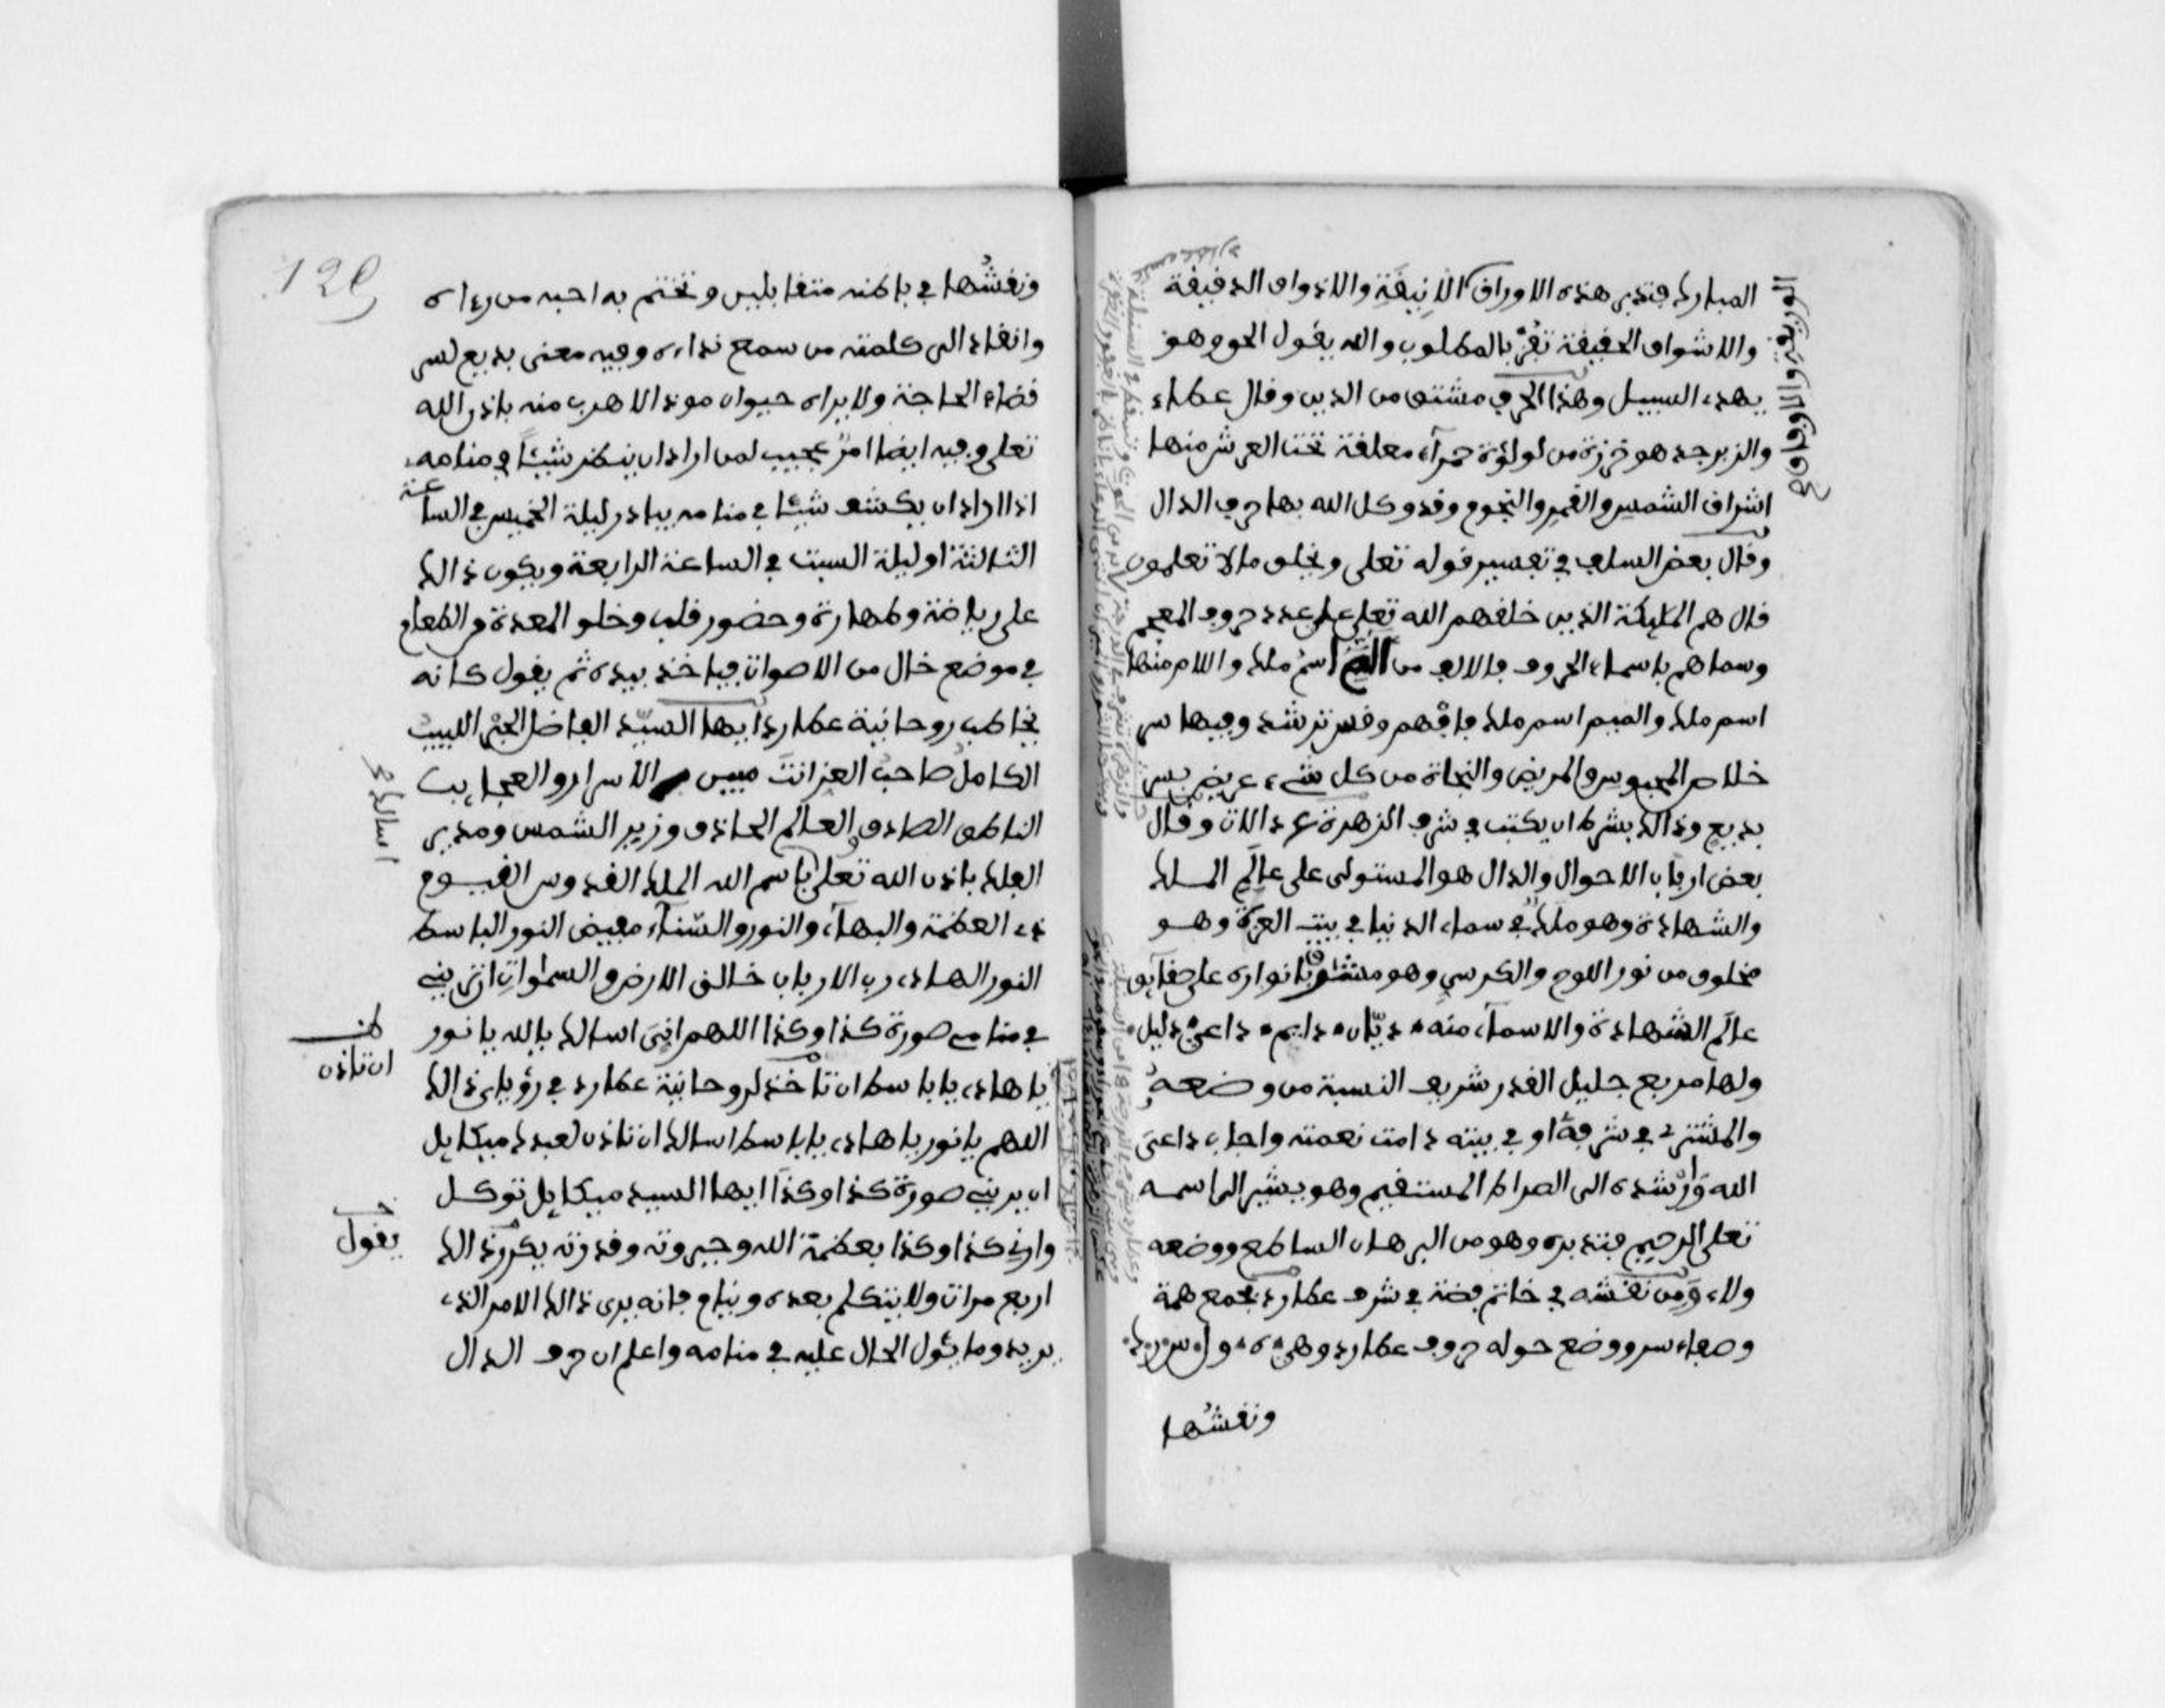 المبارك فتدبر هذه الاوراق الانيقة والاذواق الدقيقة
والاشواق الحقيقة تفز بالمطلوب والله يقول الحق وهو
يهدي السبيل وهذا الحرف مشتق من الدين وقال عطاء
والزبرجد هو خرزة من لولؤة حمراء معلقة تحت العرش منها
اشراق الشمس والقمر والنجوم وقد وكل الله بها حرف الدال
وقال بعض السلف في تفسير قوله تعلى ويخلق ما لا تعلمون
قال هم المليكة الذين خلقهم الله تعلى على عدد حروف المعجم
وسماهم باسماء الحروف فالالف من الم اسم ملك واللام منها
اسم ملك والميم اسم ملك فافهم وقس ترشد وفيها سر
خلاص المحبوس والمريض والنجاة من كل شيء
بديع وذالك بشرط ان يكتب في شرف الزهرة وقال
بعض ارباب الاحوال والدال هو المستولى على عالم الملك
والشهادة وهو ملك في سماء الدنيا في بيت العزة وهو
مخلوق من نور اللوح والكرسي وهو بانواره على حقايق
عالم الشهادة والاسماء منه ديان دايم داعي دليل
ولها مربع جليل القدر شريف النسبة من وضعه
والمشتري في شرفه او في بيته دامت نعمته واجاب داعى
الله وارشده الى الصراط المستقيم وهو يشير الى اسمه
تعلى الرحيم فتدبره وهو من البرهان الساطع ووضعه
ولاء ومن نقشه في خاتم فضة في شرف عطارد بجمع همة
وصفاء سر ووضع حوله حروف عطارد وهي
ونقشها
ونقشها في باطنه متقابلين وتختم به احبه من رءاه
وانقاد الى كلمته من سمع نداءه وفيه معنى بديع لسر
قضاء الحاجة ولا يراه حيوان موذ الا هرب منه باذن الله
تعلى وفيه ايضا امر عجيب لمن اراد ان ينظر شيئا في منامه
اذا اراد ان يكشف شيئا في منامه يبادر ليلة الخميس في الساعة
الثالثة او ليلة السبت في الساعة الرابعة ويكون ذالك
على رياضة وطهارة وحضور قلب وخلو المعدة من الطعام
في موضع خال من الاصوات فياخذ بيده ثم يقول كانه
يخاطب روحانية عطارد ايها السيد الفاضل الحبر اللبيب
الكامل صاحب العز انت مبين الاسرار والعجايب
الناطق الصادق والعالم الحاذق وزير الشمس ومدبر
الفلك باذن الله تعلى باسم الله الملك القدوس القيوم
ذي العظمة والبهاء والنور والسناء مفيض النور الباسط
النور الهادي رب الارباب خالق الارض والسموات ان ترينى
في منامي صورة كذا وكذا اللهم انى اسالك يا الله يا نور
يا هادي يا باسط ان تاخذ لروحانية عطارد في رؤياى ذالك
اللهم يا نور يا هادي يا باسط اسالك ان تاذن لعبدك ميكايل
ان يرينى صورة كذا وكذا ايها السيد ميكايل توكل
وارنى كذا وكذا بعظمة الله وجبروته وقدرته يكرر ذالك
اربع مرات ولا يتكلم بعده وينام فانه يرى ذالك الامر الذي
يريد وما يئول الحال عليه في منامه واعلم ان حرف الدال
اسالك
ان تاذن
يقول